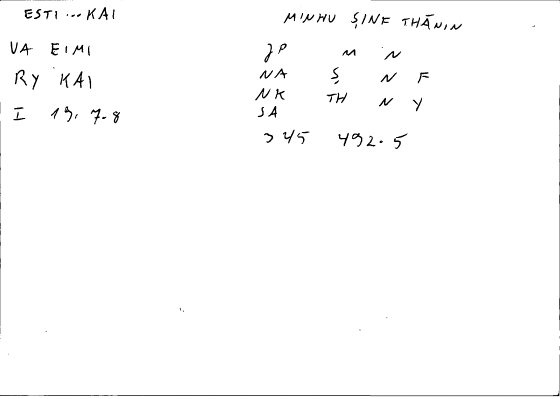 ESTI ... KAI
VA EIMI
RY KAI
I 19. 7-8
MINHU ṢINF THĀNIN
JP M N
NA Ṣ N F
NK TH N Y
SA
345 492. 5